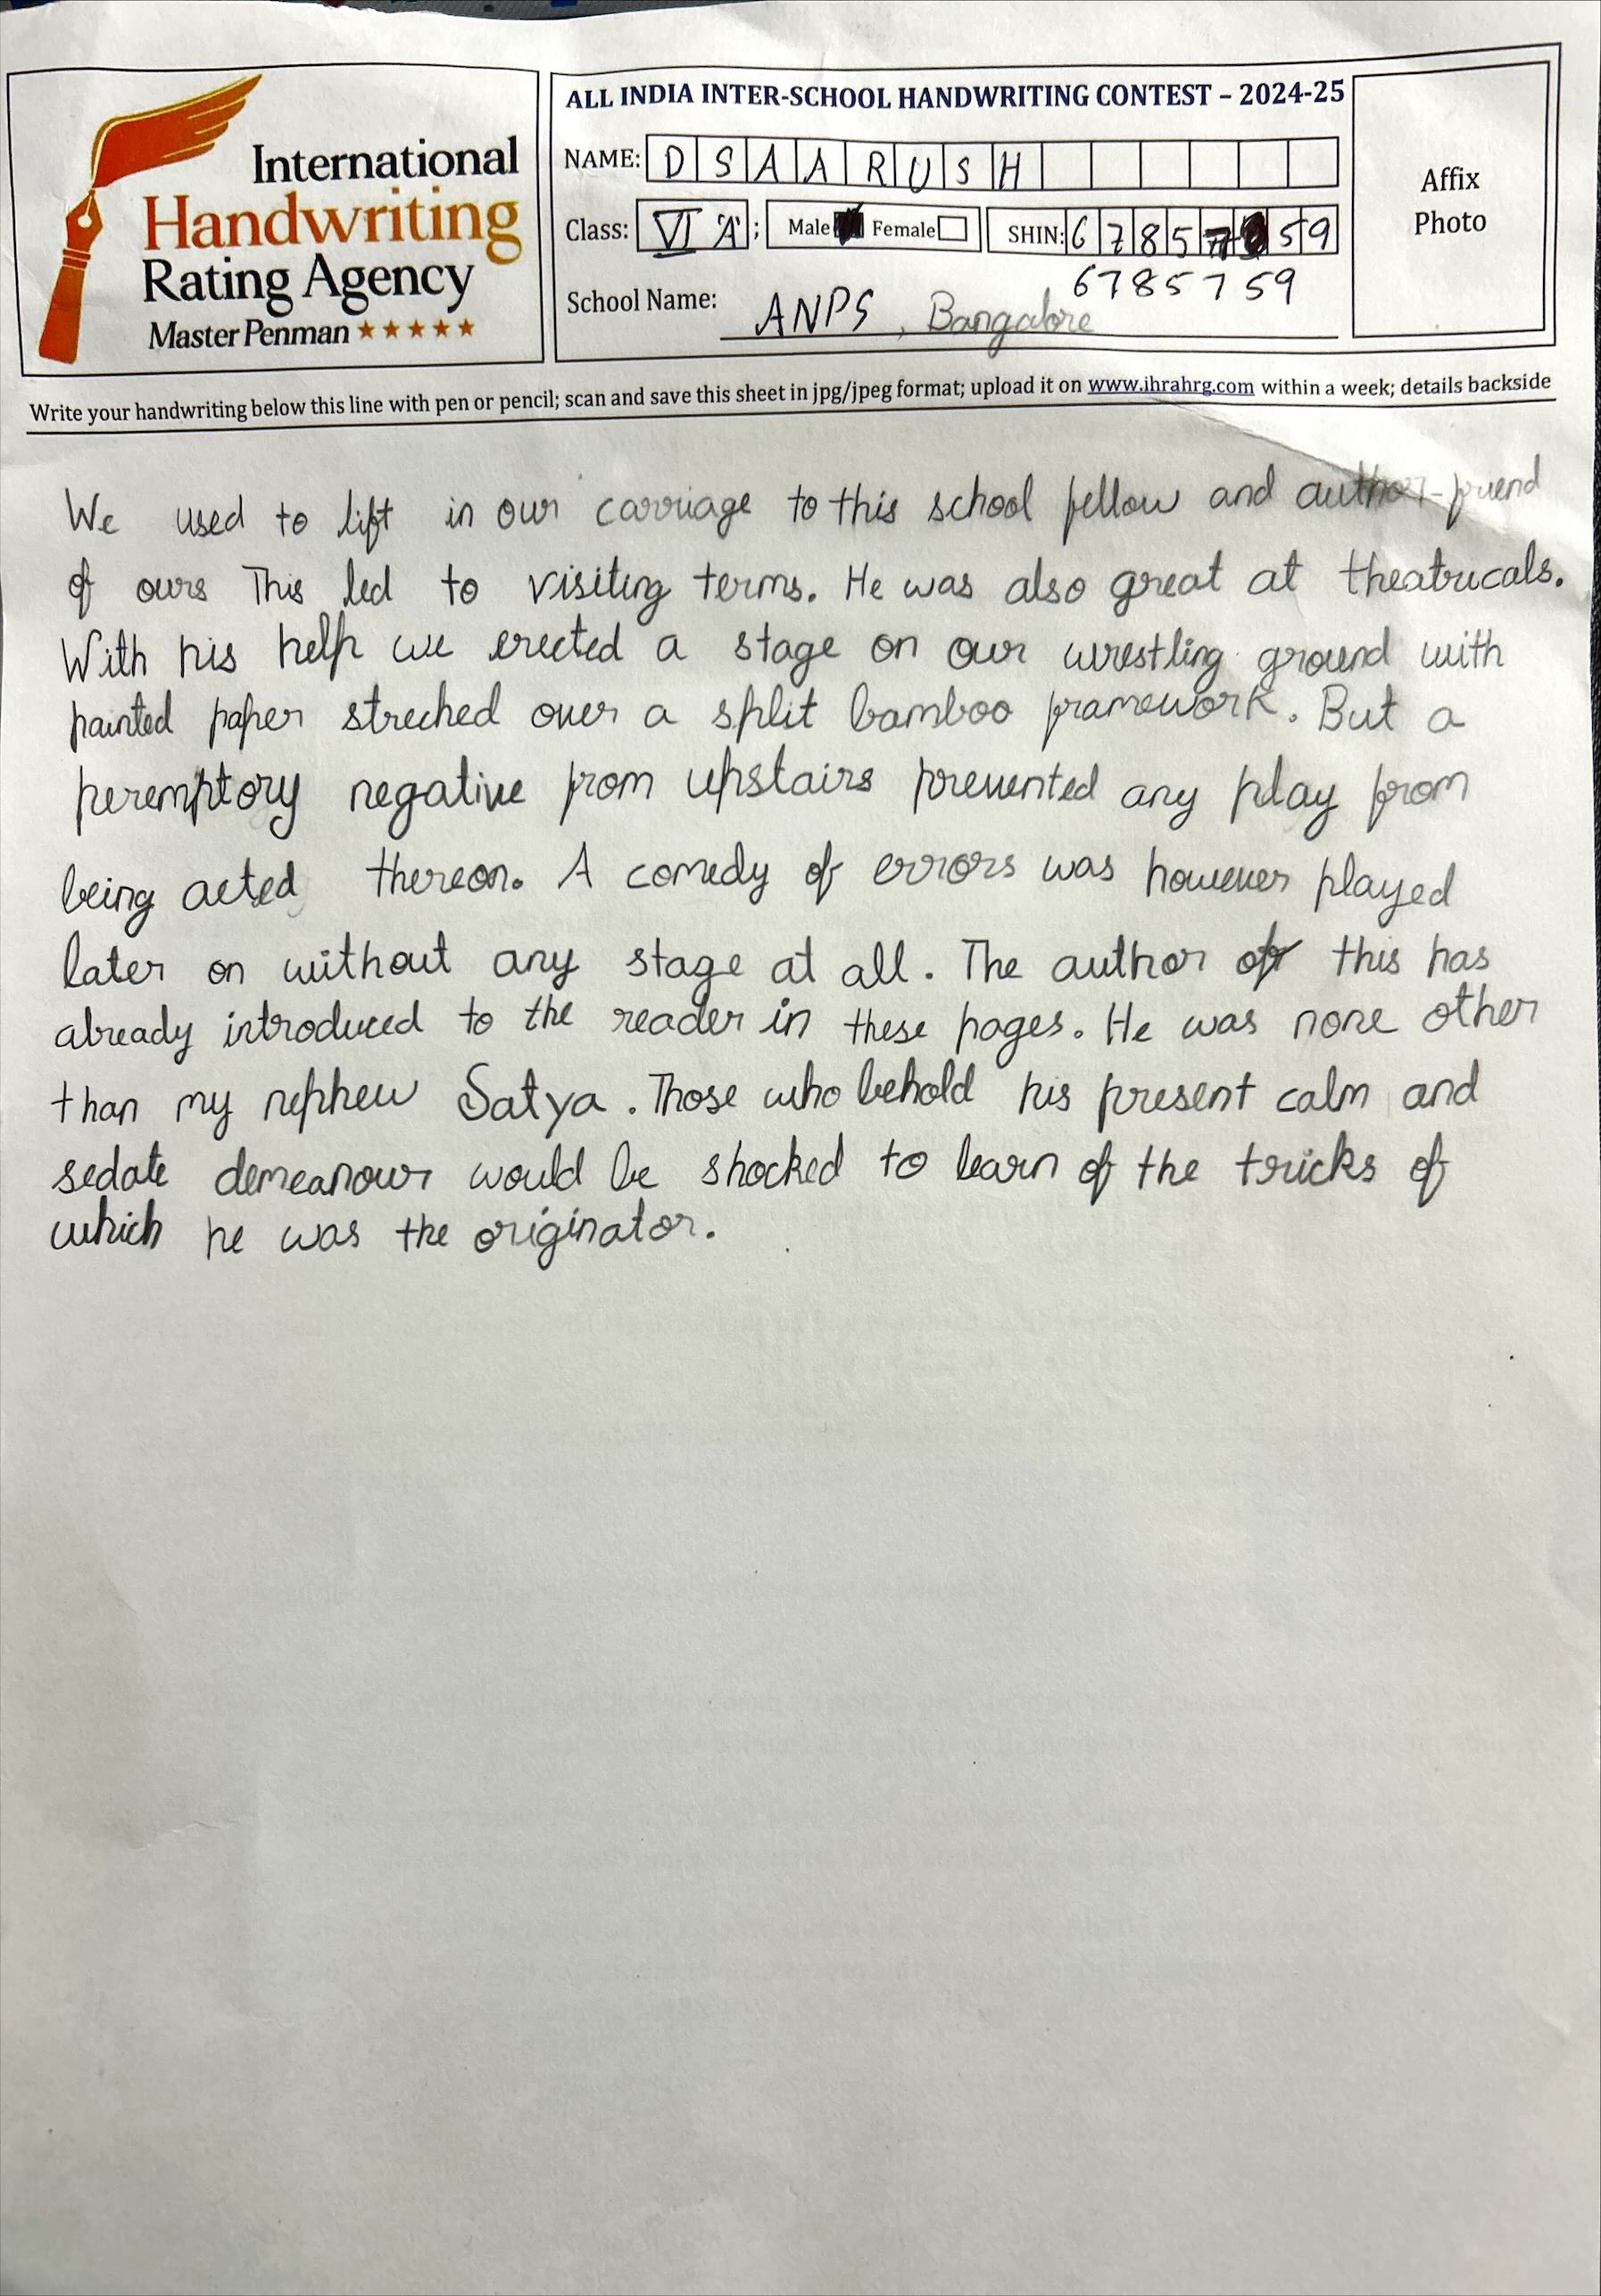 International
Handwriting
Rating Agency
Master Penman ★★★★★
ALL INDIA INTER-SCHOOL HANDWRITING CONTEST – 2024-25
NAME: D S A A R U S H
Class: VI 'A'; Male Female SHIN: 6 7 8 5 7 5 9
6785759
School Name: ANPS, Bangalore
Affix
Photo
Write your handwriting below this line with pen or pencil; scan and save this sheet in jpg/jpeg format; upload it on www.ihrahrg.com within a week; details backside
We used to lift in our carriage to this school fellow and author-friend
of ours This led to visiting terms. He was also great at theatricals.
With his help we erected a stage on our wrestling ground with
painted paper streched over a split bamboo framework. But a
peremptory negative from upstairs prevented any play from
being acted thereon. A comedy of errors was however played
later on without any stage at all. The author of this has
already introduced to the reader in these pages. He was none other
than my nephew Satya. Those who behold his present calm and
sedate demeanour would be shocked to learn of the tricks of
which he was the originator.